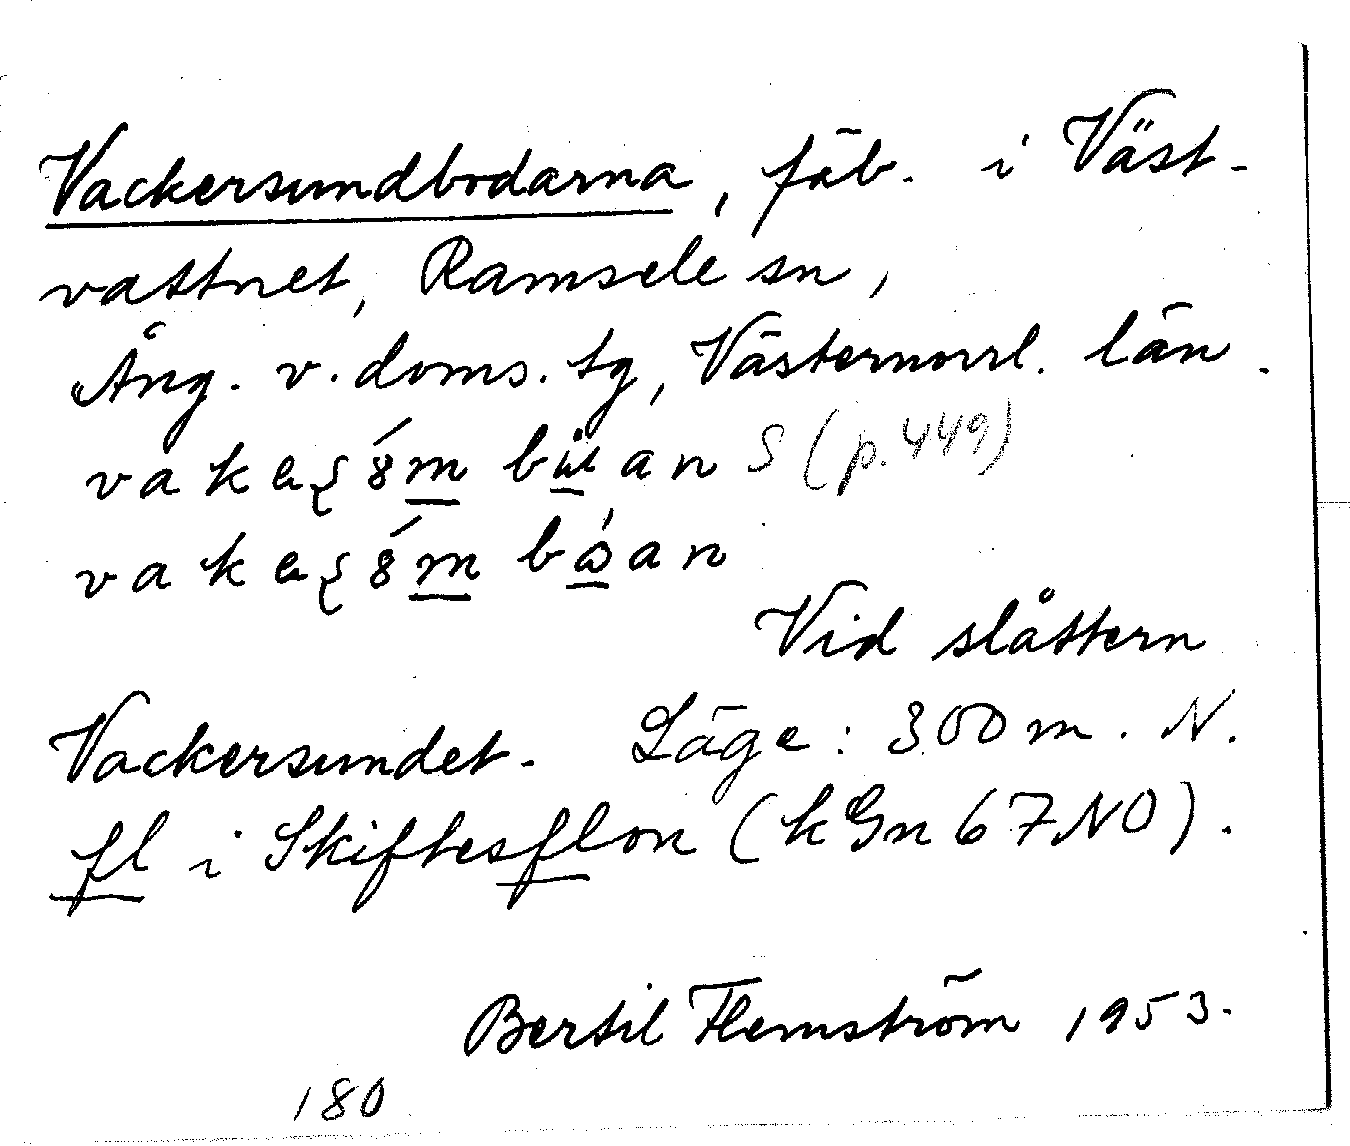 Vackersundbodarna, fäb. i Väst-
vattnet, Ramsele sn,
Ång. v. doms. tg, Västernorrl. län.
S (p. 449)
Vid slåttern
Vackersundet. Läge: 300 m. N.
fl i Skiftesflon (kGn 67 NO).
Bertil Flemström 1953.
180